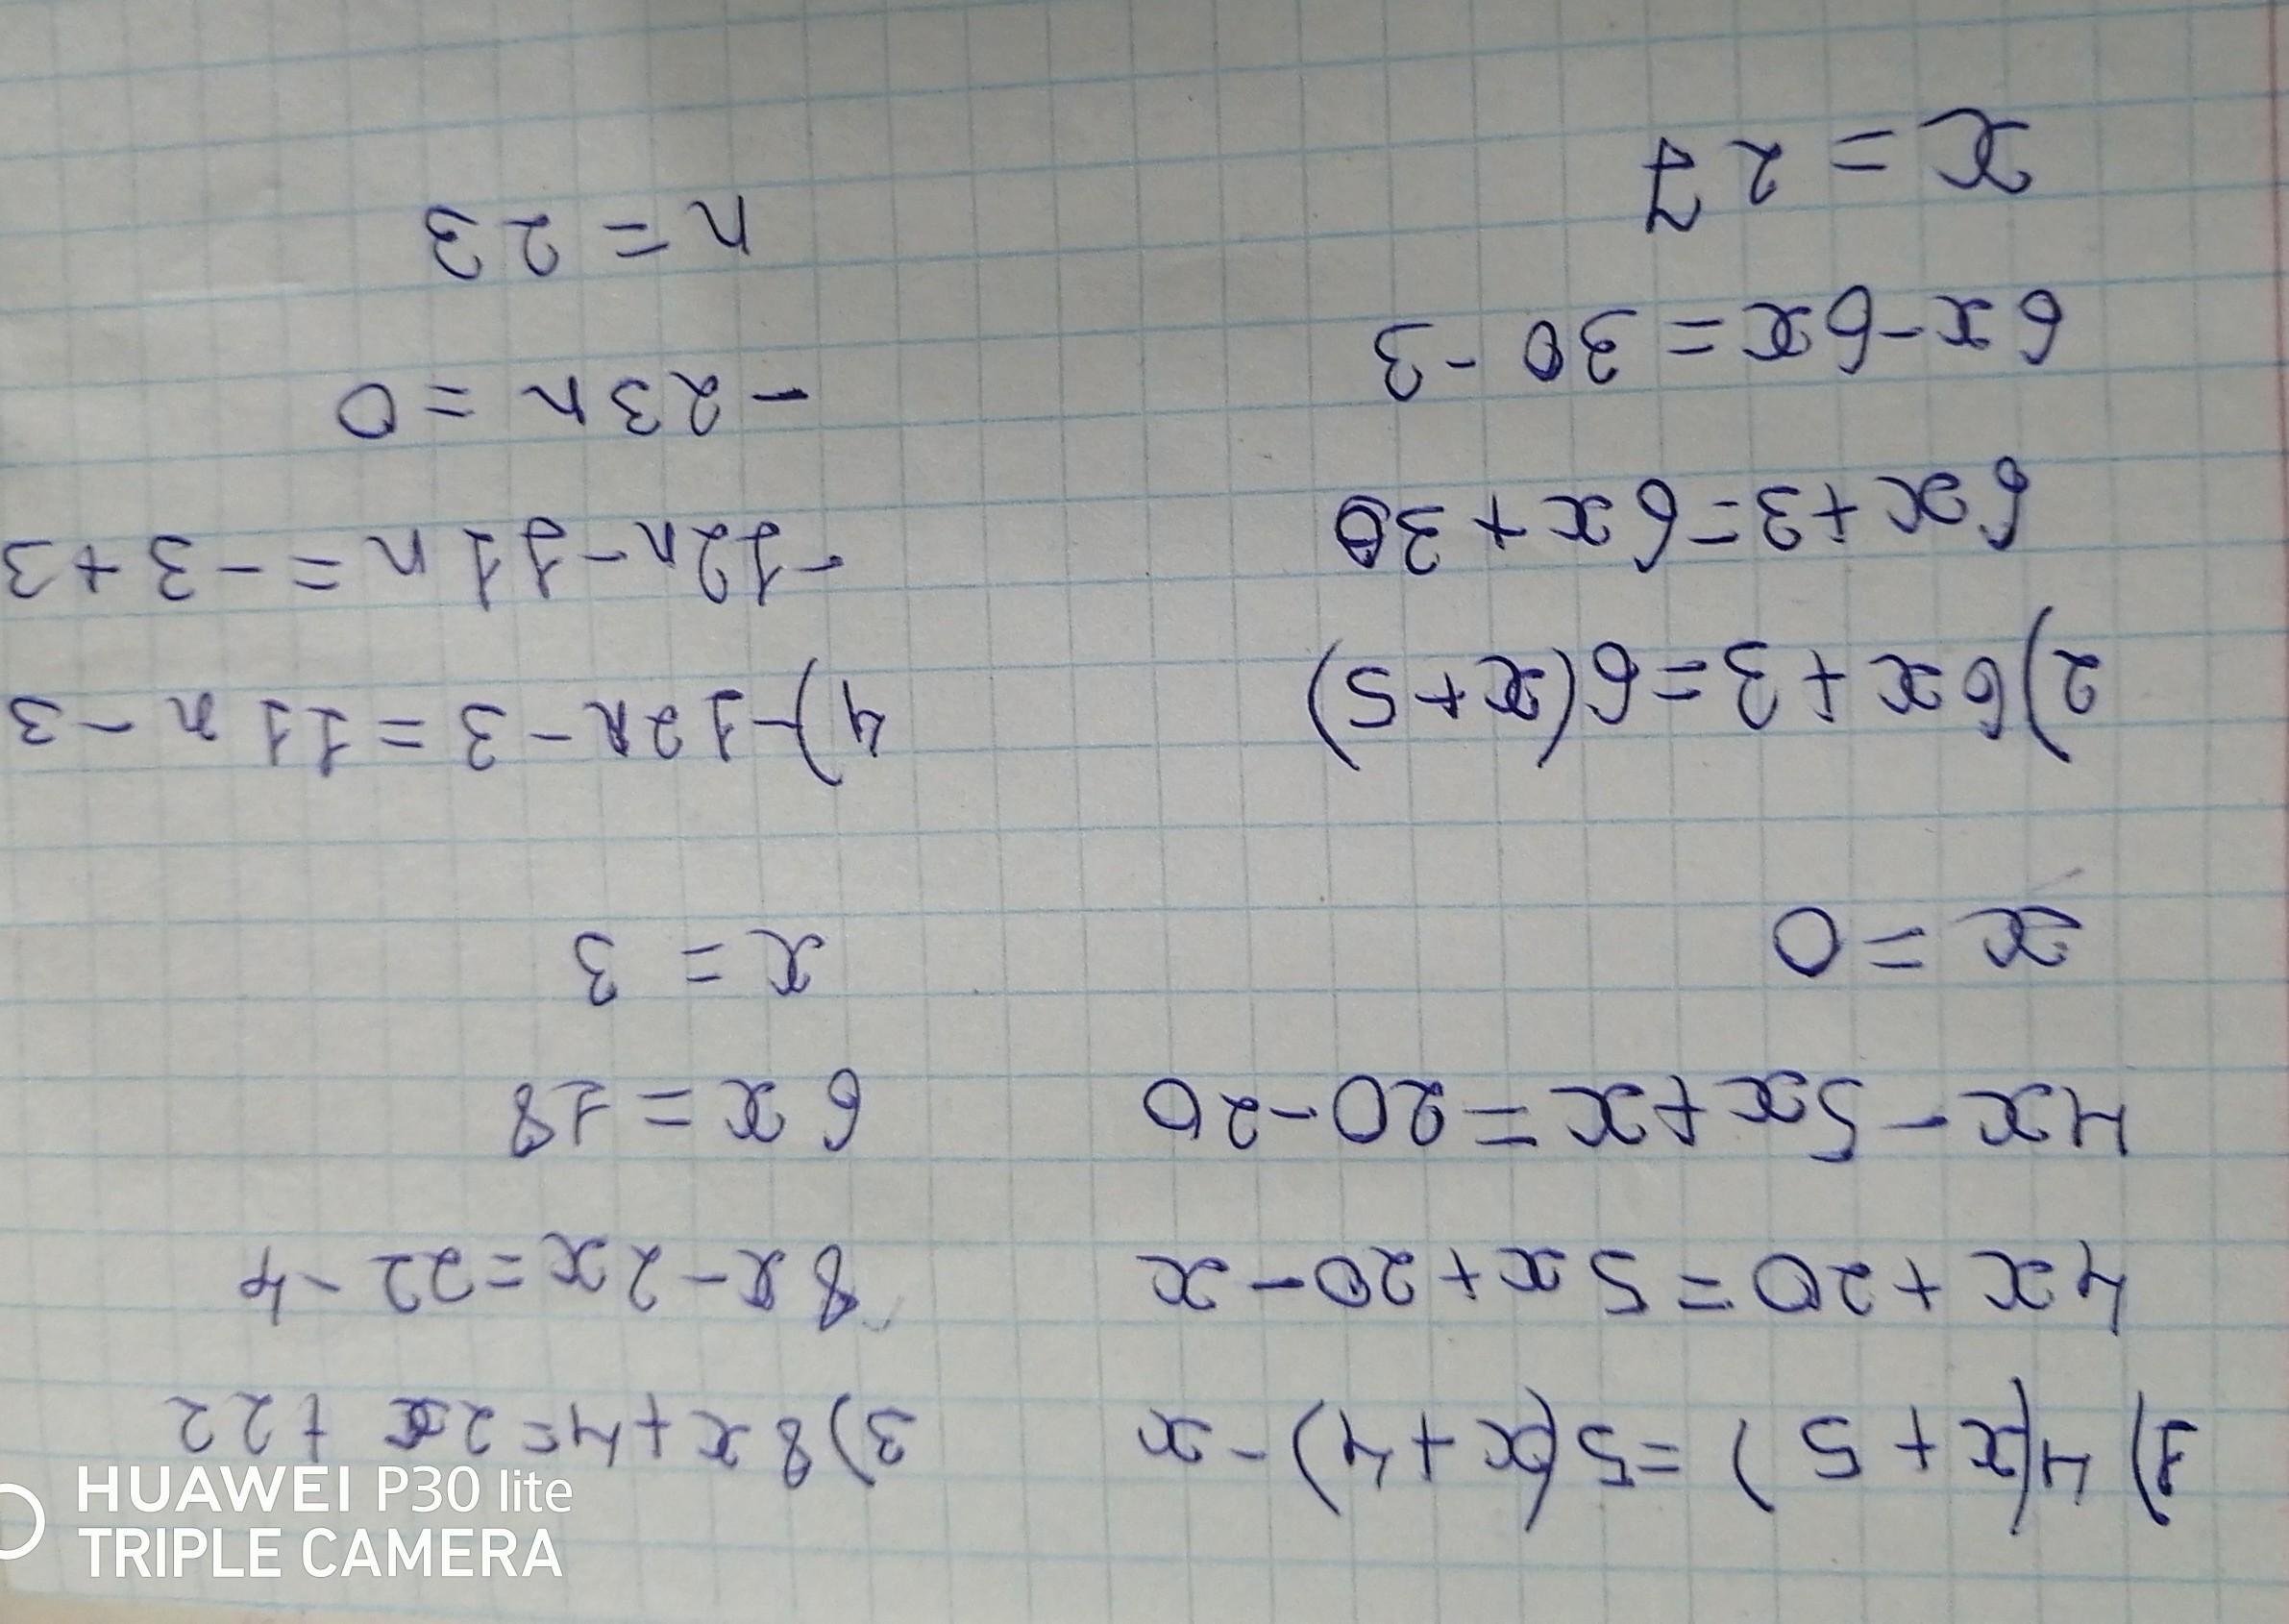 1) 4(x+5) = 5(x+4) - x
4x + 20 = 5x + 20 - x
4x - 5x + x = 20 - 20
x = 0
2) 6x + 3 = 6(x+5)
6x + 3 = 6x + 30
6x - 6x = 30 - 3
x = 27
3) 8x + 4 = 2x + 22
8x - 2x = 22 - 4
6x = 18
x = 3
4) -12n - 3 = 11n - 3
-12n - 11n = -3 + 3
-23n = 0
n = 23
HUAWEI P30 lite
TRIPLE CAMERA